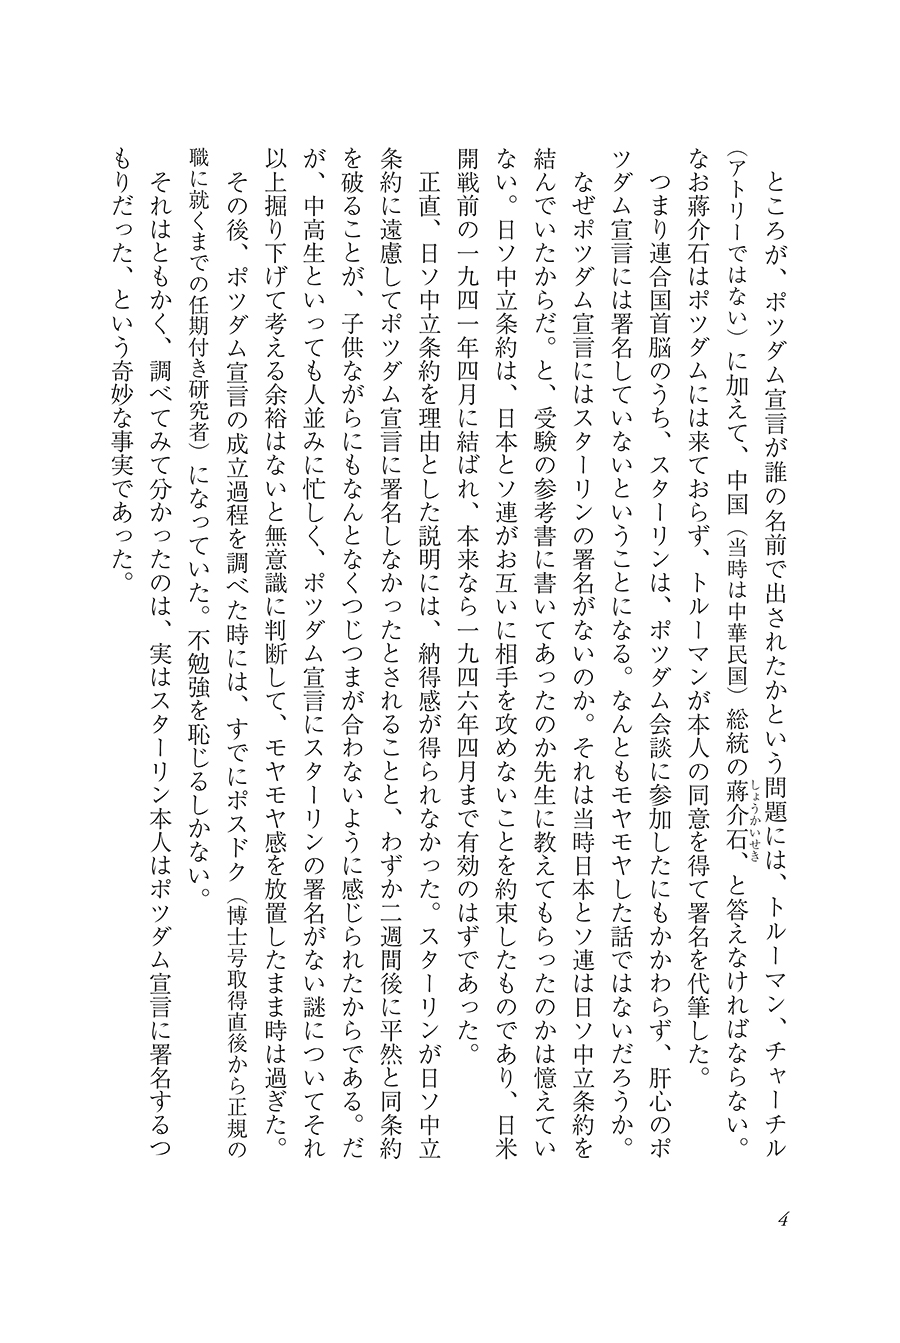 ところが、ポツダム宣言が誰の名前で出されたかという問題には、トルーマン、チャーチル
（アトリーではない）に加えて、中国（当時は中華民国）総統の蔣介石、と答えなければならない。
しょうかいせき
なお蔣介石はポツダムには来ておらず、トルーマンが本人の同意を得て署名を代筆した。
つまり連合国首脳のうち、スターリンは、ポツダム会談に参加したにもかかわらず、肝心のポ
ツダム宣言には署名していないということになる。なんともモヤモヤした話ではないだろうか。
なぜポツダム宣言にはスターリンの署名がないのか。それは当時日本とソ連は日ソ中立条約を
結んでいたからだ。と、受験の参考書に書いてあったのか先生に教えてもらったのかは憶えてい
ない。日ソ中立条約は、日本とソ連がお互いに相手を攻めないことを約束したものであり、日米
開戦前の一九四一年四月に結ばれ、本来なら一九四六年四月まで有効のはずであった。
正直、日ソ中立条約を理由とした説明には、納得感が得られなかった。スターリンが日ソ中立
条約に遠慮してポツダム宣言に署名しなかったとされることと、わずか二週間後に平然と同条約
を破ることが、子供ながらにもなんとなくつじつまが合わないように感じられたからである。だ
が、中高生といっても人並みに忙しく、ポツダム宣言にスターリンの署名がない謎についてそれ
以上掘り下げて考える余裕はないと無意識に判断して、モヤモヤ感を放置したまま時は過ぎた。
その後、ポツダム宣言の成立過程を調べた時には、すでにポスドク（博士号取得直後から正規の
職に就くまでの任期付き研究者）になっていた。不勉強を恥じるしかない。
それはともかく、調べてみて分かったのは、実はスターリン本人はポツダム宣言に署名するつ
もりだった、という奇妙な事実であった。
4